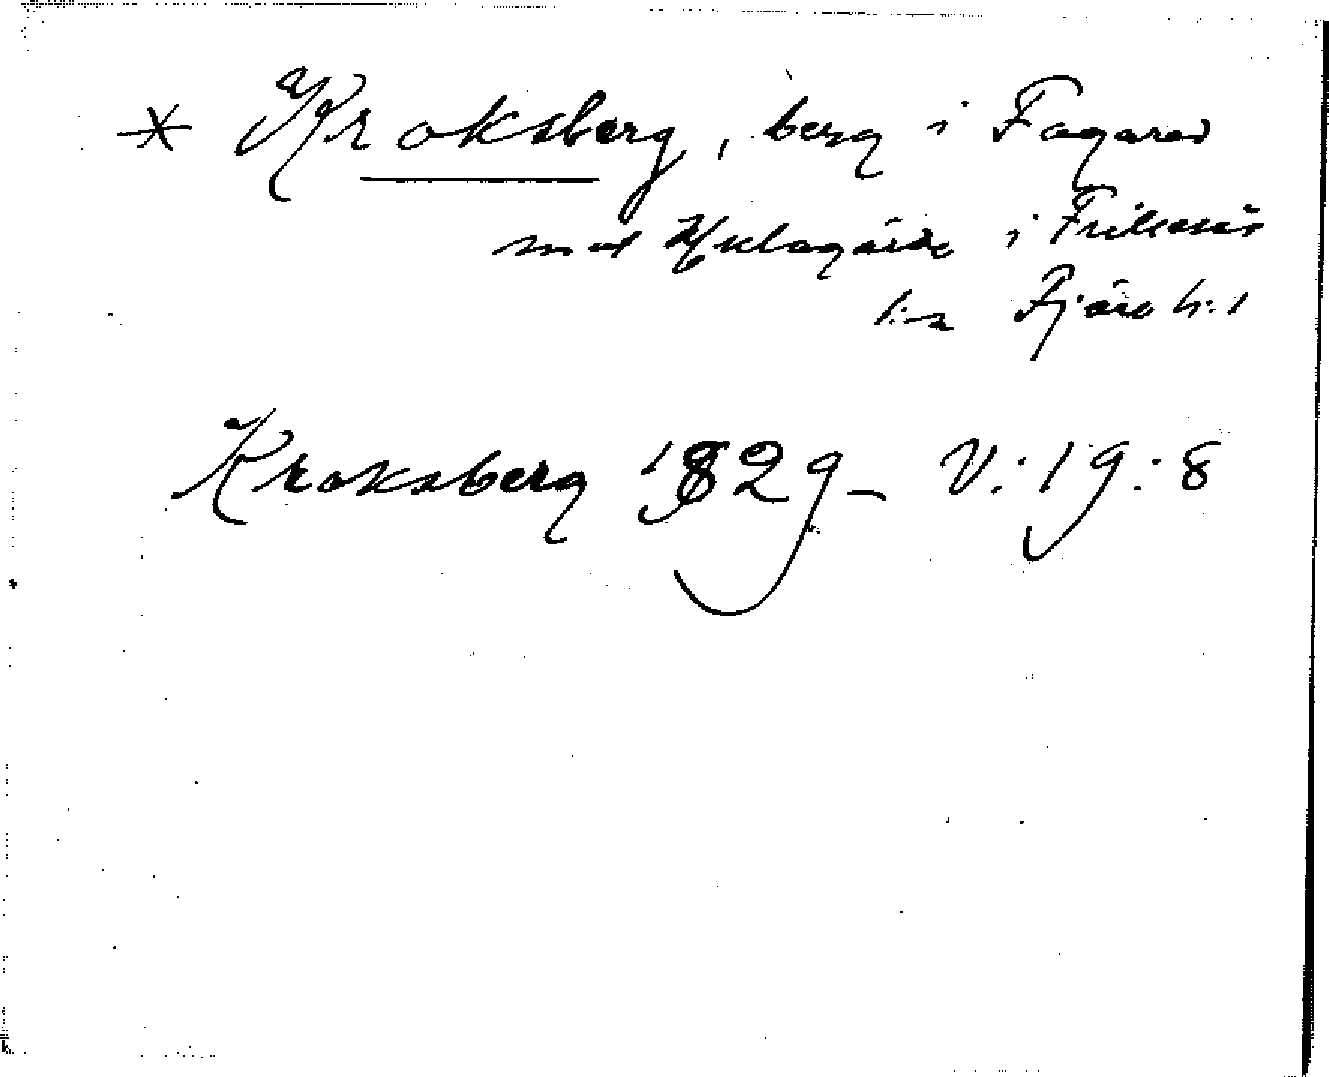 * Kroksberg, berg i Fagared
mot Hulagärde i Frillesås
sn Fjäre h:d
Kroksberg 1829 – V:19:8